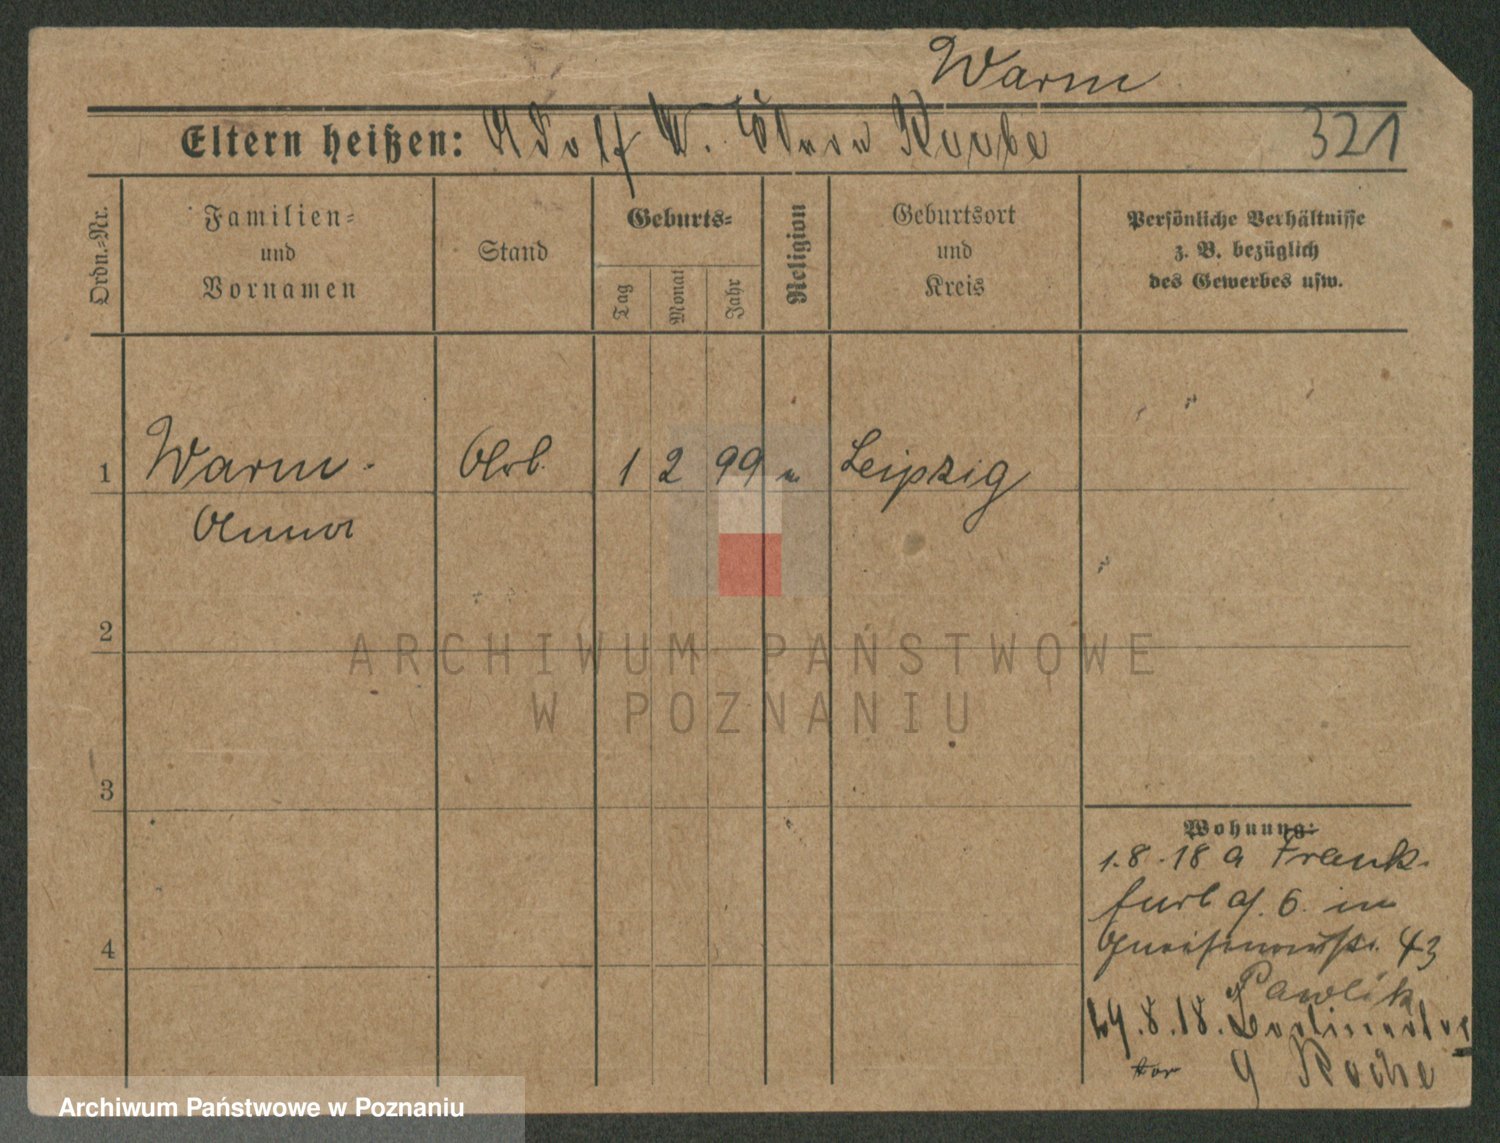 Warm
Eltern heißen: Adolf W. Anna
321
Ordn.=Nr.
Familien=
und
Vornamen
Stand
Geburts=
Tag
Monat
Jahr
Religion
Geburtsort
und
Kreis
Persönliche Verhältnisse
z. B. bezüglich
des Gewerbes usw.
1 Warm. 1 2 99 Leipzig
Anna
2
3
4
Wohnung:
1.8.18 a Frank-
furt a/. 6. in
Gneisenaustr. 43
Pawlik
29.8.18. Berliner
tor 9
ARCHIWUM PAŃSTWOWE
W POZNANIU
Archiwum Państwowe w Poznaniu